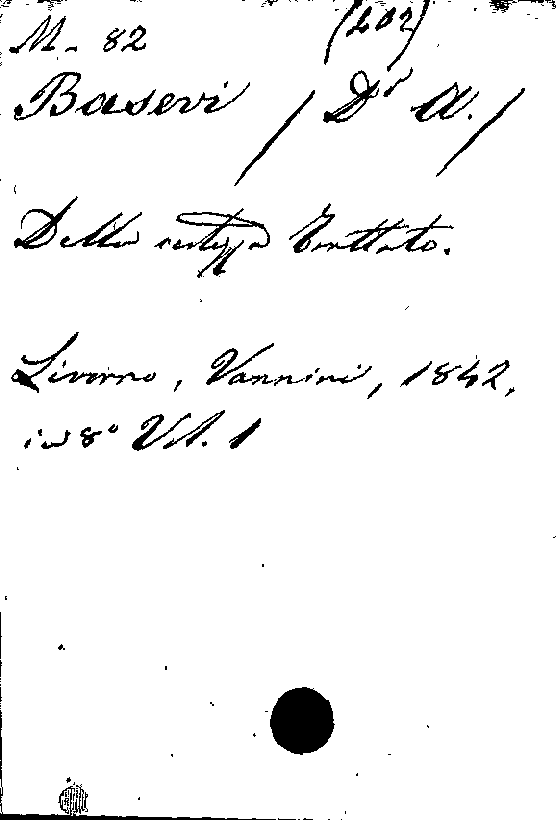 M. 82 (202)
Basevi / Dr A. /
Della certezza Trattato.
Livorno, Vannini, 1842,
in 8° Vol. 1